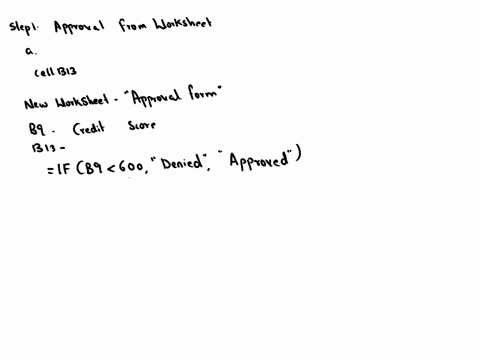 Step1. Approval from Worksheet
a.
Cell B13
New Worksheet - "Approval form"
B9 - Credit Score
B13 -
=IF (B9 < 600, "Denied", "Approved")